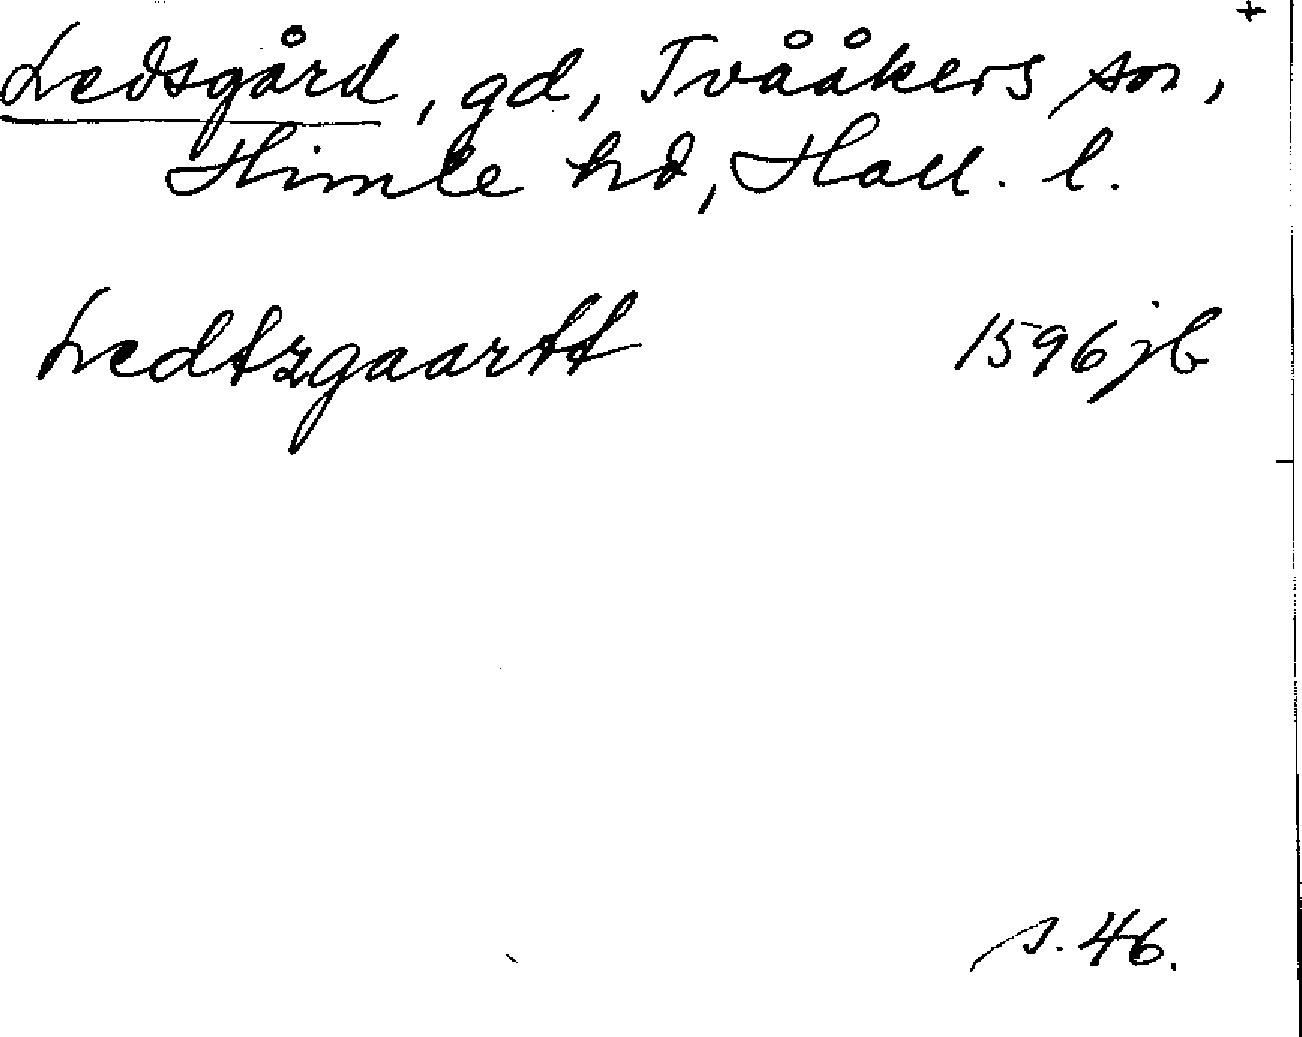 +
Ledsgård, gd, Tvååkers sn,
Himle hd, Hall. l.
Ledtzgaartt 1596 jb
s. 46.